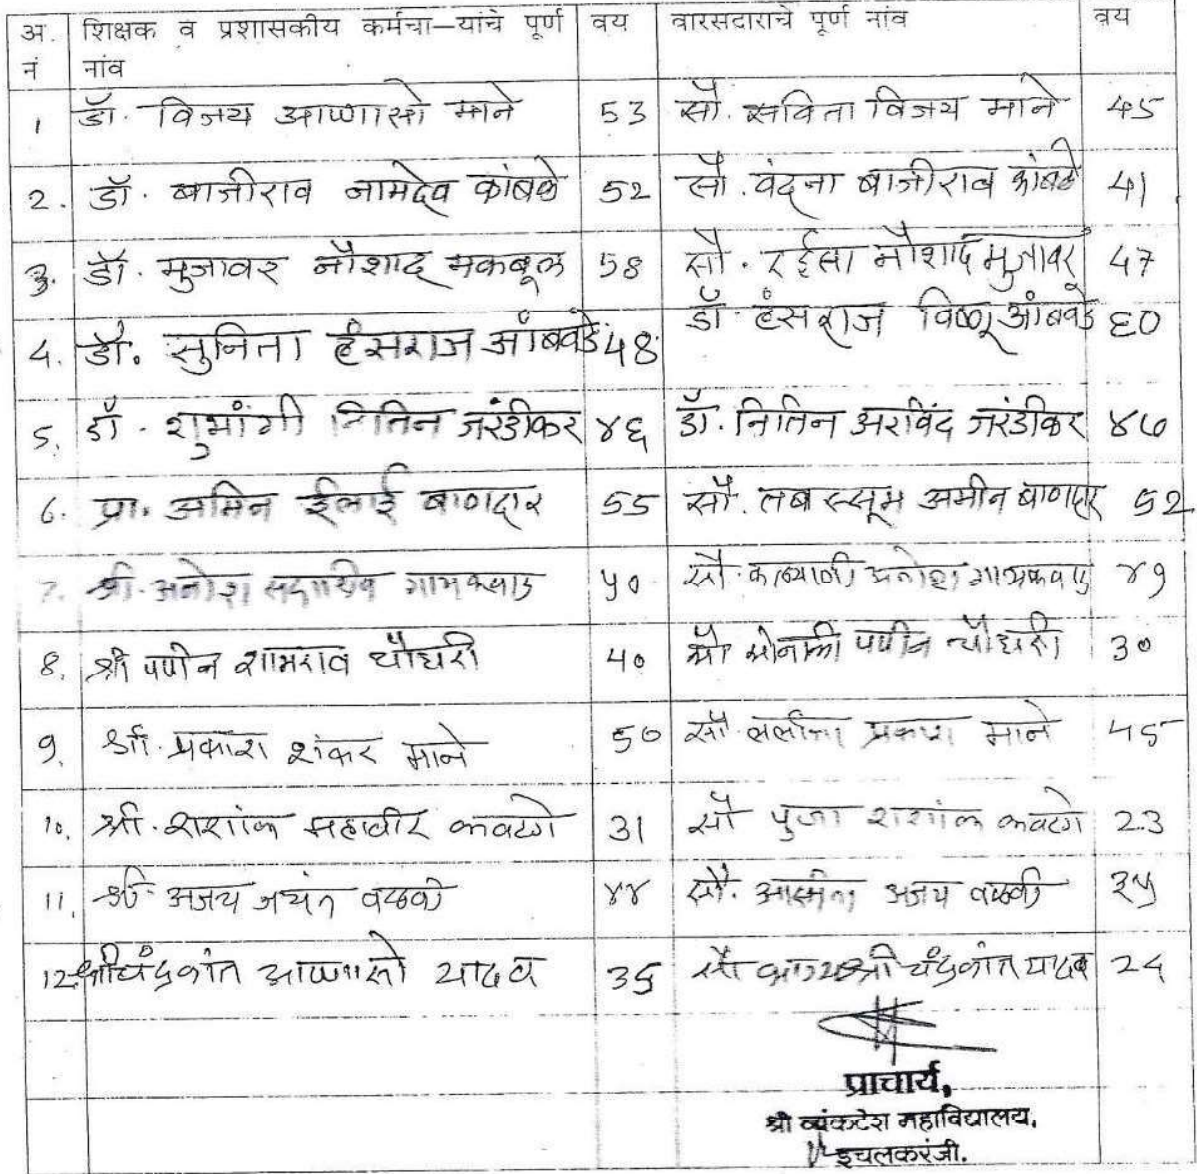 अ. शिक्षक व प्रशासकीय कर्मचा–यांचे पूर्ण वय वारसदाराचे पूर्ण नांव वय
नं नांव
1 डॉ. विजय आण्णासो माने 53 सौ. सविता विजय माने 45
2. डॉ. बाजीराव नामदेव कांबळे 52 सौ. वंदना बाजीराव कांबळे 41
3. डॉ. मुजावर नौशाद मकबूल 58 सौ. रईसा नौशाद मुजावर 47
4. डॉ. सुनिता हंसराज आंबवडे 48 डॉ. हंसराज विष्णू आंबवडे ६0
5. डॉ. शुभांगी नितिन जरंडीकर ४६ डॉ. नितिन अरविंद जरंडीकर ४७
6. प्रा. अमिन ईलाई बाणदार 55 सौ. तबस्सूम अमीन बाणदार 52
7. श्री. सदाशिव गायकवाड ५० सौ. कल्याणी गायकवाड ४१
8. श्री शामराव चौधरी 40 सौ सोनाली चौधरी 30
9. श्री. प्रकाश शंकर माने 50 सौ. प्रकाश माने 45
10. श्री. शशांक महावीर कवठगे 31 सौ पुजा शशांक कवठगे 23
11. श्री. अजय जयंत वळवी ४४ सौ. अजय वळवी ३५
12. श्री चंद्रकांत आण्णासो यादव 35 सौ चंद्रकांत यादव 24
प्राचार्य,
श्री व्यंकटेश महाविद्यालय,
इचलकरंजी.